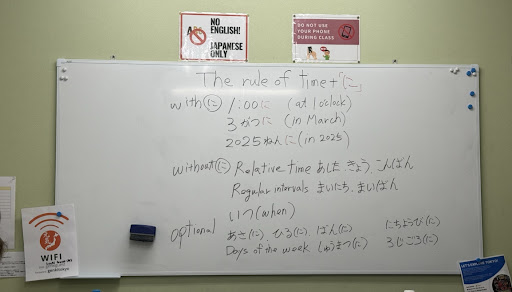 NO ENGLISH!
JAPANESE ONLY
DO NOT USE
YOUR PHONE
DURING CLASS
The rule of time+「に」
with に 1:00に (at 1 o'clock)
3がつに (in March)
2025ねんに (in 2025)
without に Relative time あした、きょう、こんばん
Regular intervals まいにち、まいばん
いつ (when)
optional あさ(に)、ひる(に)、ばん(に) にちようび(に)
Days of the week しゅうまつ(に) 3じごろ(に)
WIFI